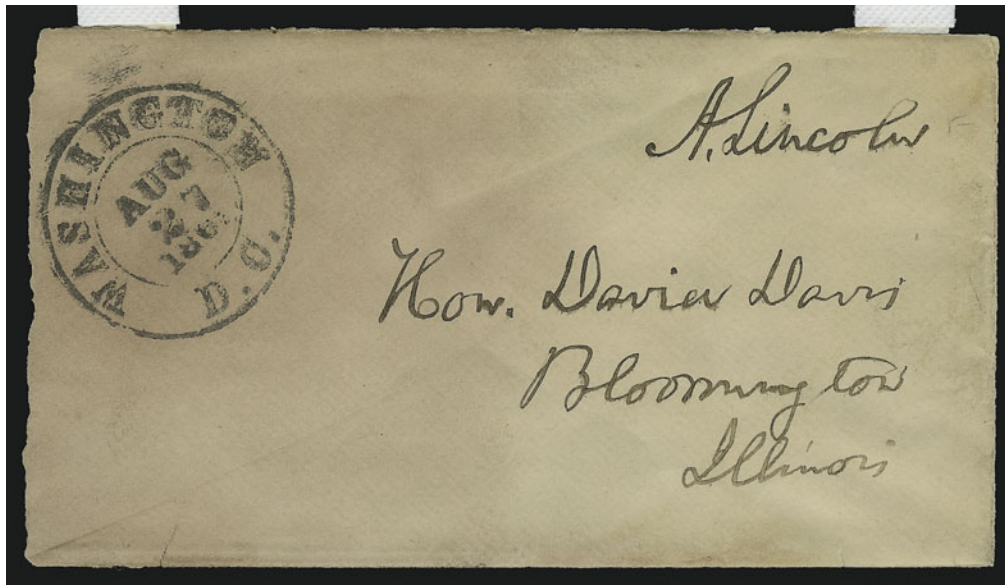 WASHINGTON
AUG
27
186
D. C.
A. Lincoln
Hon. David Davis
Bloomington
Illinois